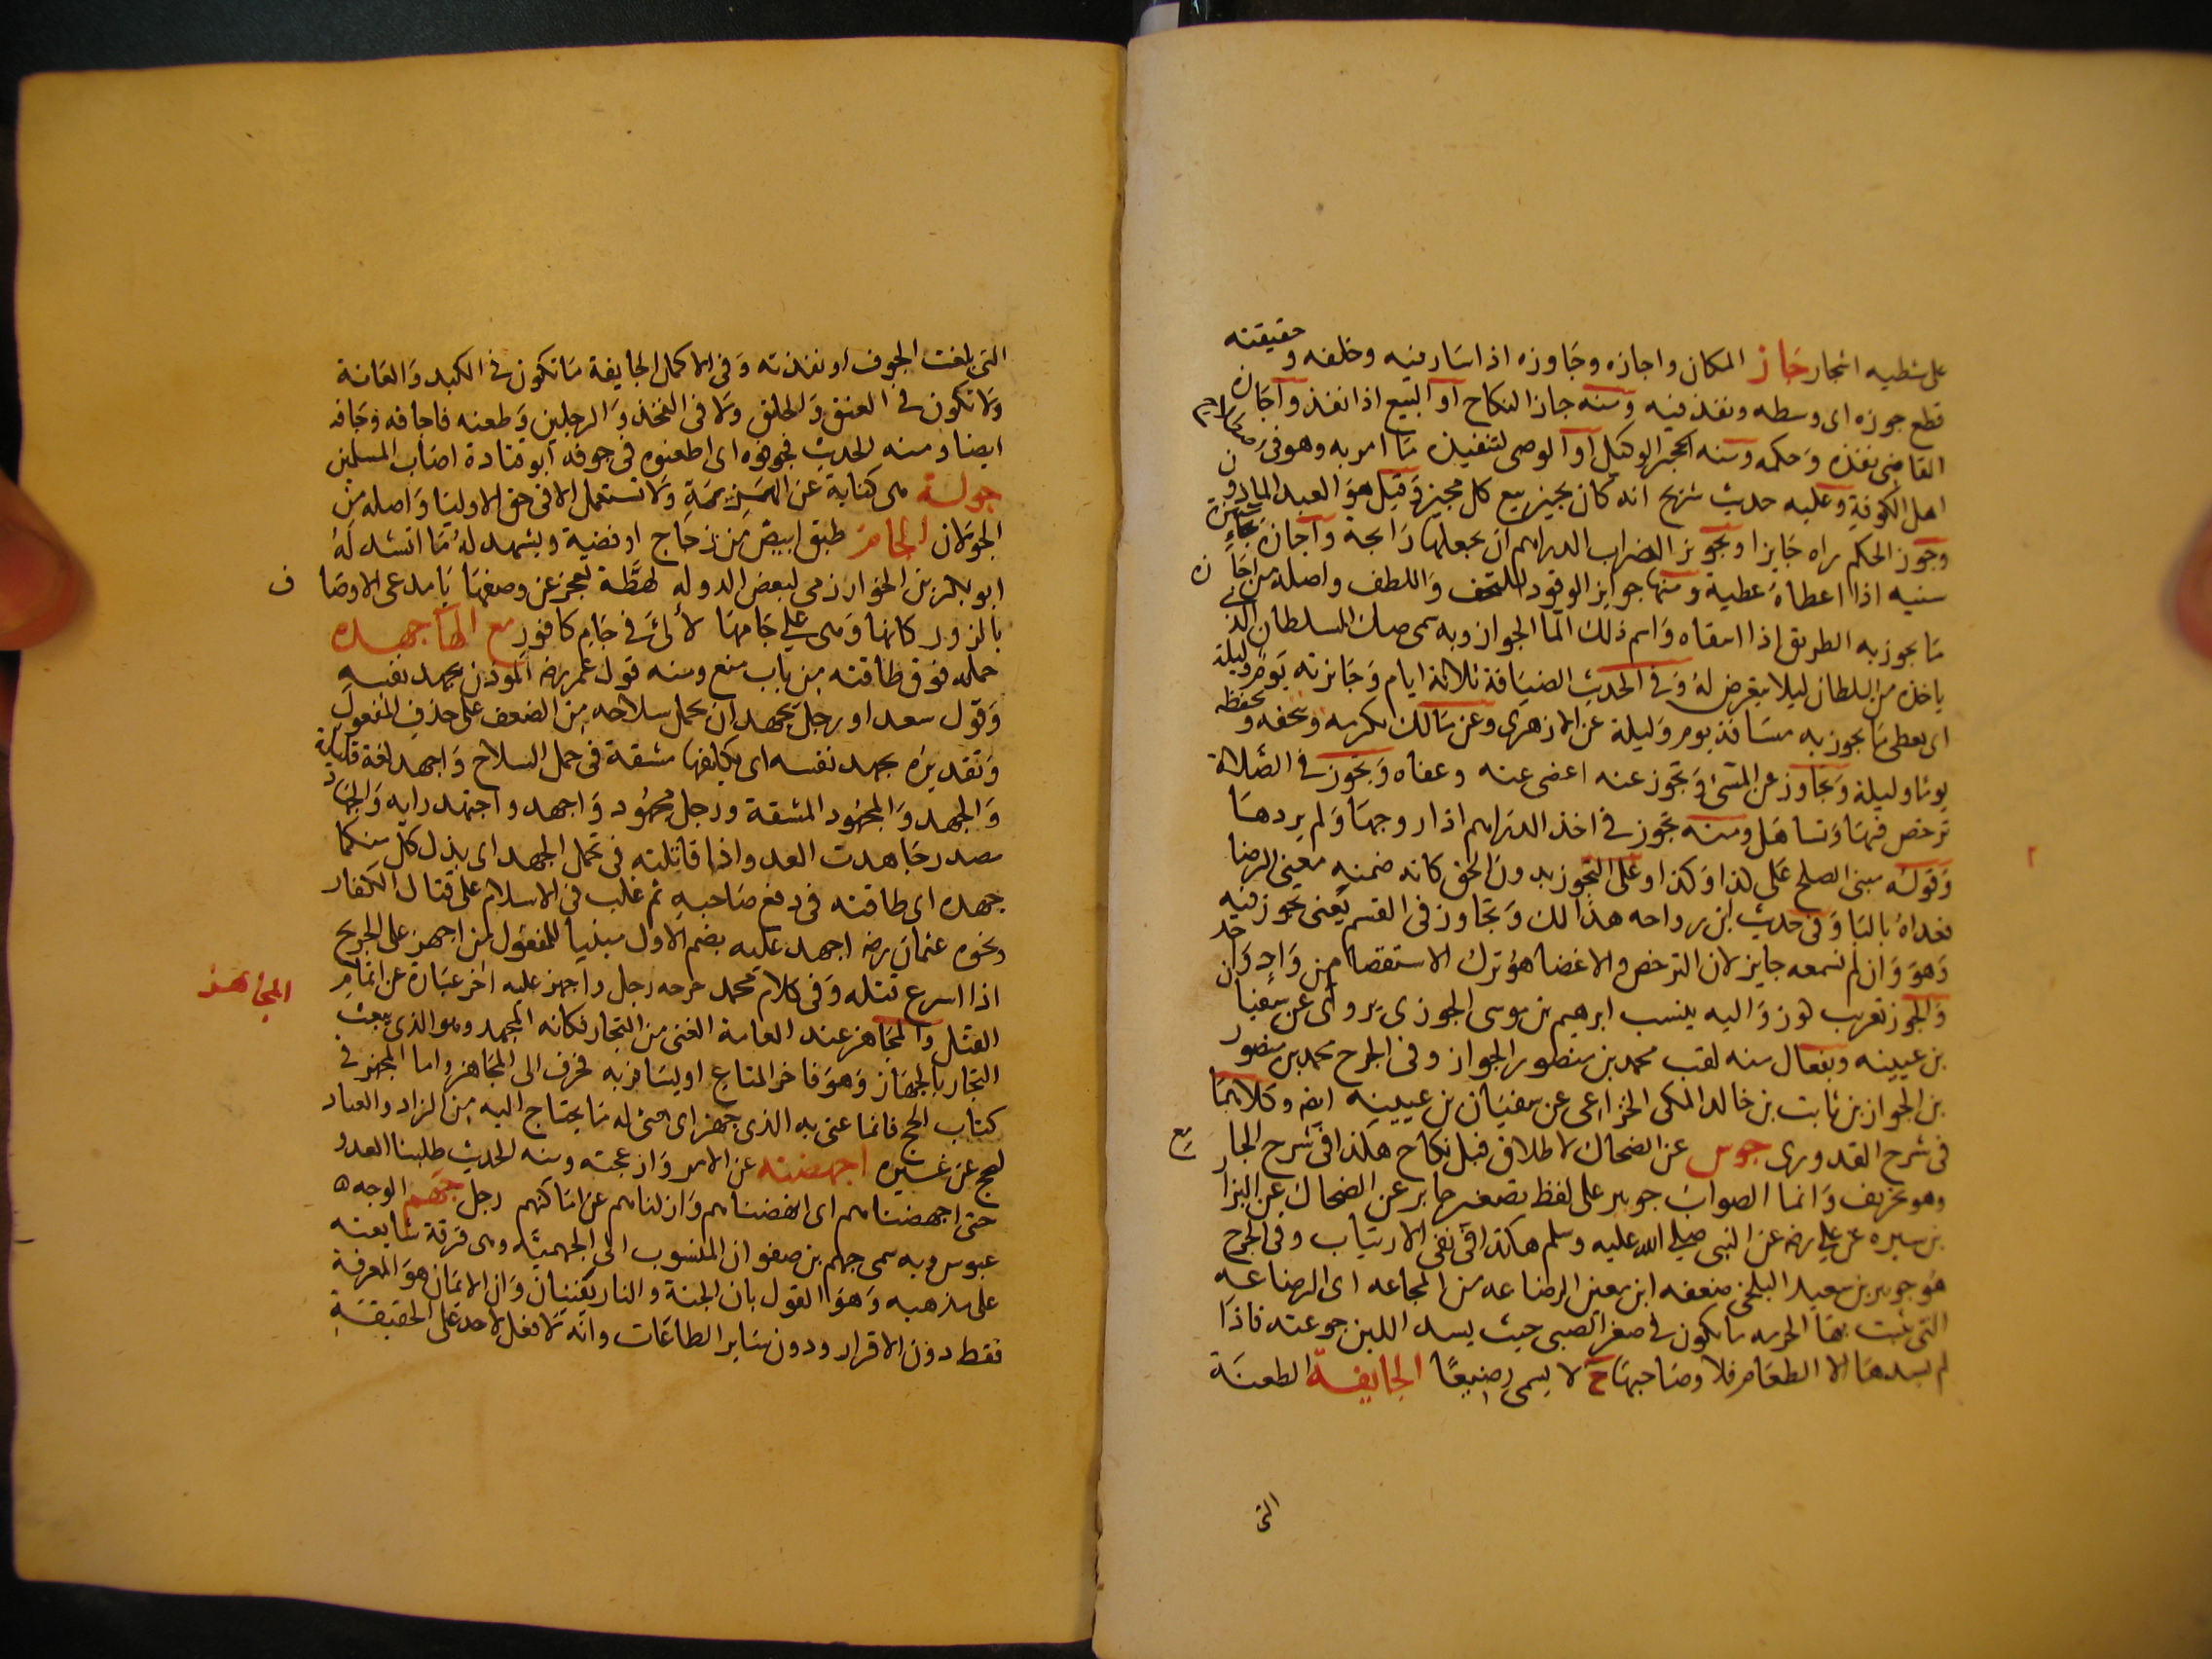 على شطيه اشجار جَاز المكان واجازه وجَاوزه اذا سَار فيه وخلفه و حقيقته
قطع جوزه اى وسطه ونفذ فيه ومنه جاز النكاح او البيع اذا نفذ واجَازه
القاضى نفذه وَحكمه ومنه المجيز الوكيل او الوصى لتنفيذه مَا امر به وهو فى
اهل الكوفة وعليه حديث شريح انه كان يجيز بيع كل مجيز وَقيل هوَ العبد الماذون
وجوز الحكم راه جَايزا وتجويز الضراب الدراهم ان يجعلها رَايجة واجازه
سنيه اذا اعطاهُ عطية ومنها جوايز الوفود للتحف وَاللطف واصله من اجَازه
مَا يجوز به الطريق اذا اسقاه وَاسم ذلك المَا الجواز وبه سمى صك السلطان الذى
ياخذه من السلطان ليلا يتعرض لهُ وَفى الحديث الضيَافة ثلاثة ايام وَجَايزته يَوم وَليلة
اى يعطى مَا يجوز به مسَافة يوم وَليلة عن الازهرى وعن مَالك يكرمه ويتحفه ويحفظه
يومًا وليلة وَتجَاوز عن المسَئ وَتجوز عنه اغضى عنه وعفاه وَتجوز فى الصَّلاة
ترخص فيهَا وَتسَاهل ومنه تجوز فى اخذ الدراهم اذا روجهَا وَلم يردهَا
وَقولهُ مبنى الصلح عَلى كذا وَكذا وعلى التجوز بدون الحق كانه ضمنه معنى الرضا
فعداهُ بالبَا وَفى حديث ابن رواحه هذا لك وَتجاوز فى القسم يعنى تجوز فيه
وَهوَ وَان لم نسمعه جايز لان الترخص والاغضا هوَ ترك الاستقصا من وَادٍ وَاحد
وَالجوز تعريب كوز وَاليه ينسب ابرهيم بن موسى الجوزى يروى عن سفيان
بن عيينه وبفعال منه لقب محمد بن منصور الجواز وفى الجرح محمد بن منصور
بن الجواز بن ثابت بن خالد المكى الخزاعى عن سفيَان بن عيينه ايضا وكلاهمَا
فى شرح القدورى جوس عن الضحاك لا طلاق قبل نكاح هكذا فى شرح الجا مع
وهو تحريف وَانما الصواب جويبر على لفظ تصغير جابر عن الضحاك عن النزال
بن سبره عن على رضه عن النبى صلى الله عليه وسلم هكذا فى نفى الارتياب وفى الجرح
هو جويبر بن سعيد البلخى ضعفه ابن معين الرضاعه من المجاعه اى الرضاعه
التى تثبت بهَا الحرمه مَا يكون فى صغر الصبى حيث يسد اللبن جوعته فاذا
لم يسدهَا الا الطعَام فلا وصَاحبهَا ح لا يسمى رضيعًا الجايفة الطعنَة
التى
التى بلغت الجوف او نفذته وَفى الاكمال الجايفة مَا تكون فى الكبد وَالعَانة
وَلا تكون فى العنق وَالحلق وَلا فى الفخذ وَالرجلين وَطعنه فاجافه وَجَافه
ايضا ومنه الحديث فجوفوه اى اطعنوه فى جوفه ابو قتادة اصَاب المسلمين
جولة هى كناية عن الهَزيمَة وَلا تستعمل الا فى حق الاوليَا وَاصله من
الجوَلان الجام طبق ابيضَ من زجَاج او فضية ويشهد لهُ مَا انشد لهُ
ابو بكر بن الخوارزمى لبعض الدوله لحظة تعجز عن وصفهَا يَا مدعى الاوصَا ف
بالزور كانها وَهى على جَامهَا لآلئ فى جَام كافور مع الهَا جهده
حمله فوق طاقته من باب منع ومنه قول عمر رضه المؤذن يجهد نفسه
وَقول سعد او رجل يجهد ان يحمل سلاحه من الضعف على حذف المفعول
وَتقديره يجهد نفسه اى يكلفها مشقة فى حمل السلاح وَاجهد لغة قليلة
وَالجهد وَالمجهُود المشقة ورجل مجهُود وَاجهد واجتهد رايه وَالجهَاد
مصدر جَاهدت العدو اذا قاتلته فى تحمل الجهد اى بذل كل منكما
جهده اى طاقته فى دفع صَاحبه ثم غلب فى الاسلام على قتال الكفار
ونحوه عثمان رضه اجهد عليه بضم الاول مبنيا للمفعُول من اجهز على الجريح
اذا اسرع قتله وَفى كلام محمد جرحه رجل واجهز عليه اخر عبَارة عن اتمَام
المجاهز
القتل والمجَاهز عند العامة الغنى من التجار فكانه المجهد وهو الذى يبعث
التجار بالجهَاز وَهوَ فاخر المتاع او يسَافر به فحرف الى المجَاهز واما المجهز فى
كتاب الحج فانما عنى به الذى جهز اى هئ له مَا يحتاج اليه من الزاد والعتاد
لحج عن غيره اجهضته عن الامر وَازعجته ومنه الحديث طلبنا العدو
حتى اجهضناهم اى انهضناهم وَازلناهم عن امَاكنهم رجل جَهم الوجه
عبوس وبه سمى جهم بن صفوان المنسوب الى الجهميَّه وهى فرقة شايعته
على مذهبه وَهوَ القول بان الجنة والنار يفنيَان وَان الايمَان هوَ المعرفة
فقط دون الاقرار ودون سَاير الطاعَات وانه لا فعل لاحد عَلى الحقيقة